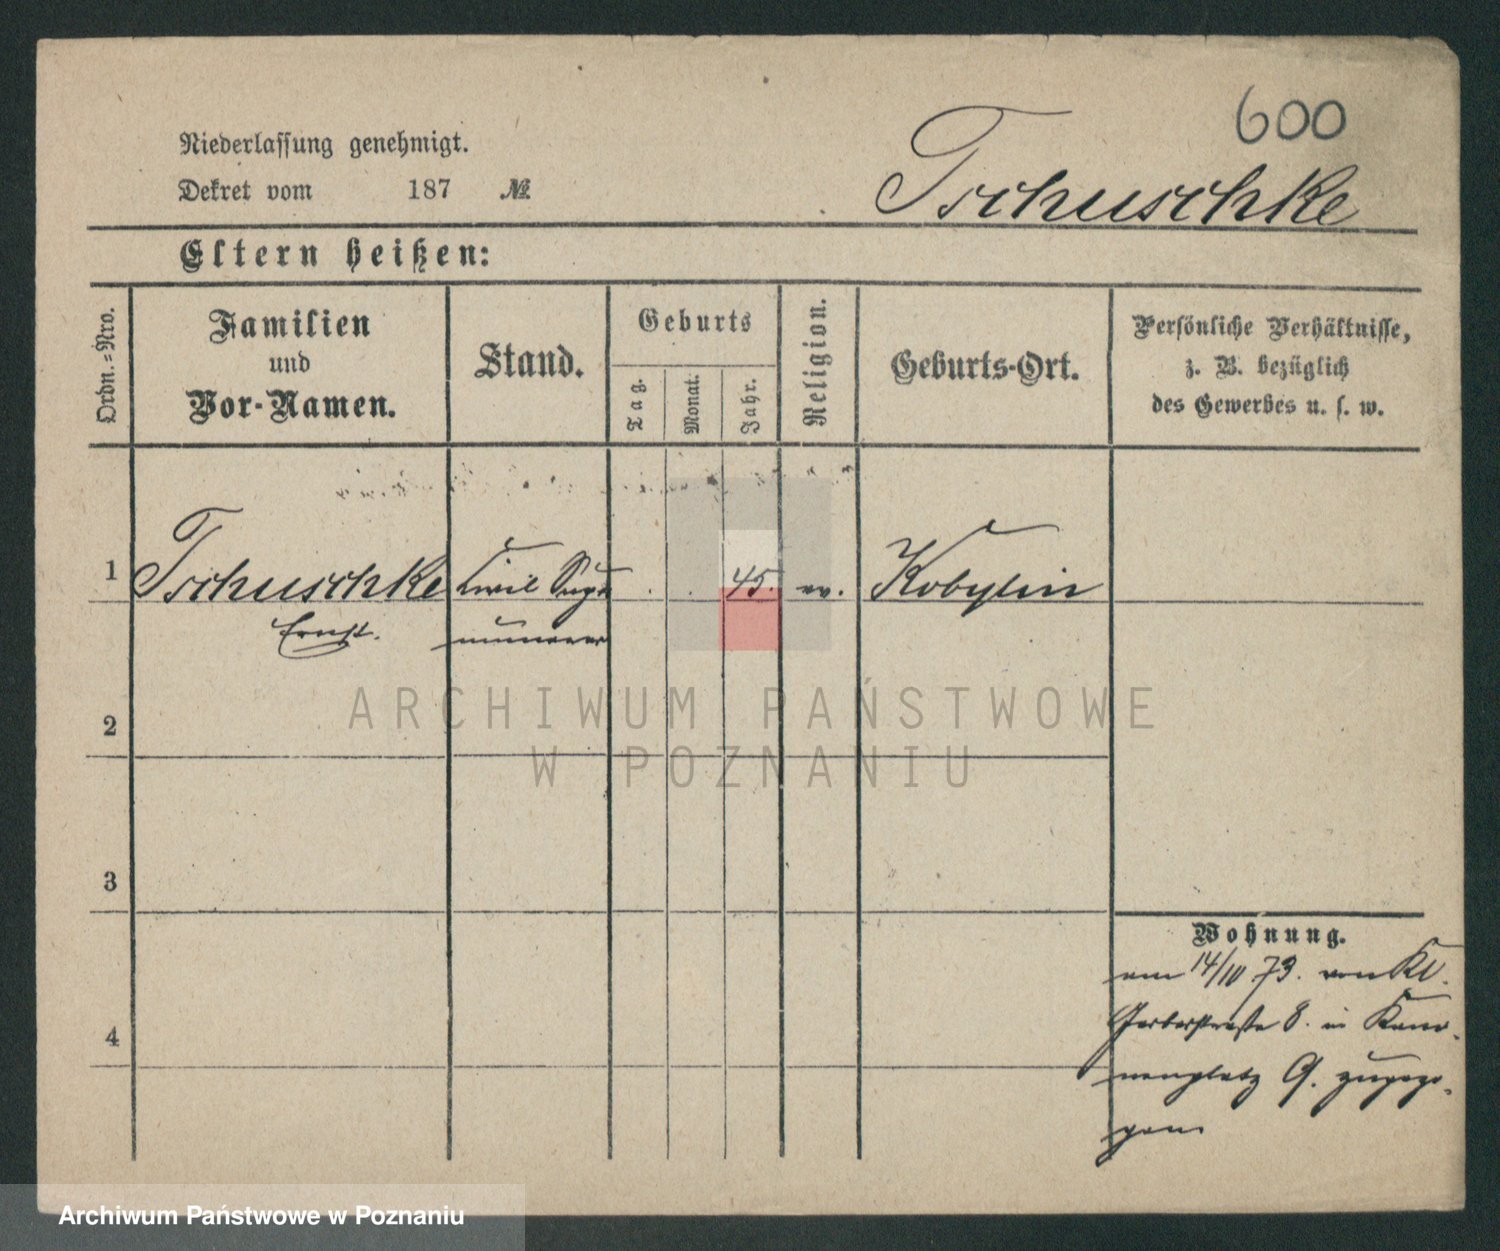 600
Niederlassung genehmigt.
Dekret vom 187 №
Tschuschke
Eltern heißen:
Ordn.=Nro.
Familien
und
Vor-Namen.
Stand.
Geburts
Tag.
Monat.
Jahr.
Religion.
Geburts-Ort.
Persönliche Verhältnisse,
z. B. bezüglich
des Gewerbes u. s. w.
1 Tschuschke Civil Supe 45. ev. Kobylin
Ernst. numerar
2
3
4
Wohnung.
am 14/10 73. von Kl.
Gerberstraße 8. in Kano-
nenplatz 9. zugezo-
gen
ARCHIWUM PAŃSTWOWE
W POZNANIU
Archiwum Państwowe w Poznaniu